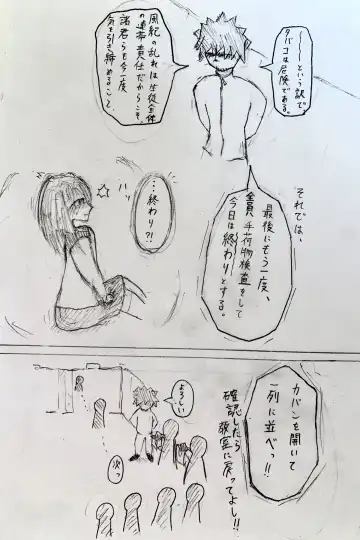 〜〜〜という訳で、
タバコは危険である。
風紀の乱れは生徒全体
の連帯責任だからこそ、
諸君らも今一度
気を引き締めること、
それでは、
最後にもう一度、
全員手荷物検査をして
今日は終わりとする。
ハッ
…終わり?!
カバンを開いて
一列に並べっ!!
確認したら
教室に戻ってよし!!
よろしい
次っ